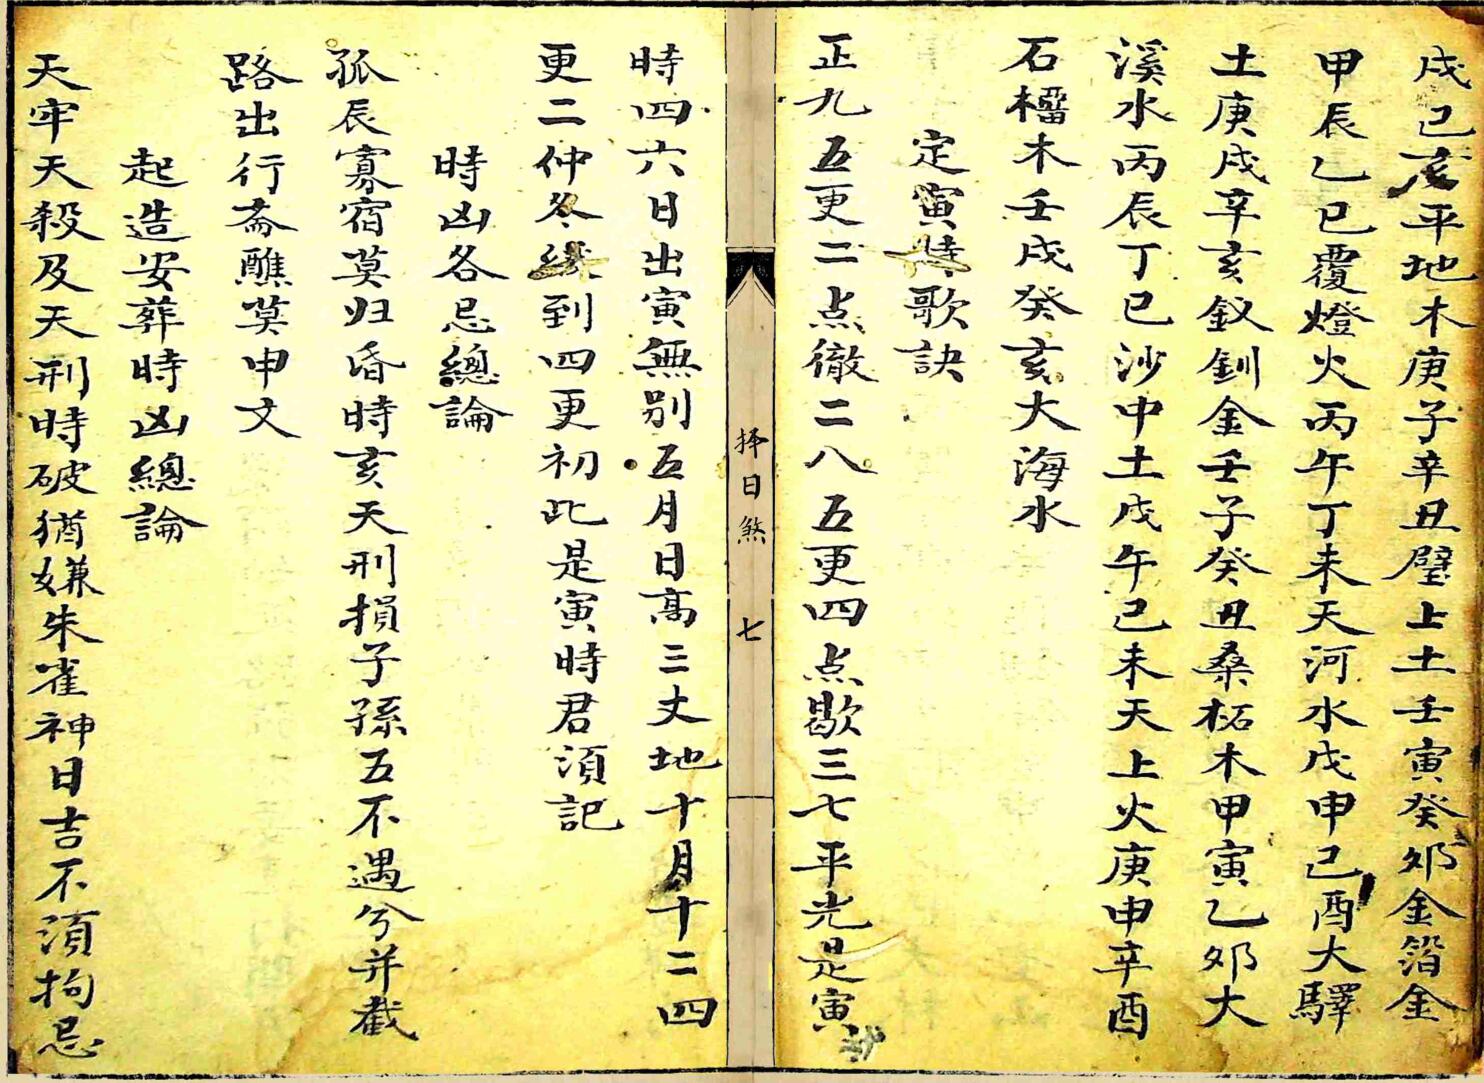 戌己亥平地木庚子辛丑壁上土壬寅癸卯金箔金
甲辰乙巳覆燈火丙午丁未天河水戊申己酉大驛
土庚戌辛亥釵釧金壬子癸丑桑柘木甲寅乙卯大
溪水丙辰丁巳沙中土戊午己未天上火庚申辛酉
石榴木壬戌癸亥大海水
定寅時歌訣
正九五更二点徹二八五更四点歇三七平光是寅
择日煞 七
時四六日出寅無别五月日高三丈地十月十二四
更二仲冬纔到四更初此是寅時君須記
時凶各忌總論
孤辰寡宿莫归昏時亥天刑損子孫五不遇兮并截
路出行斋醮莫申文
起造安葬時凶總論
天牢天殺及天刑時破猶嫌朱雀神日吉不須拘忌